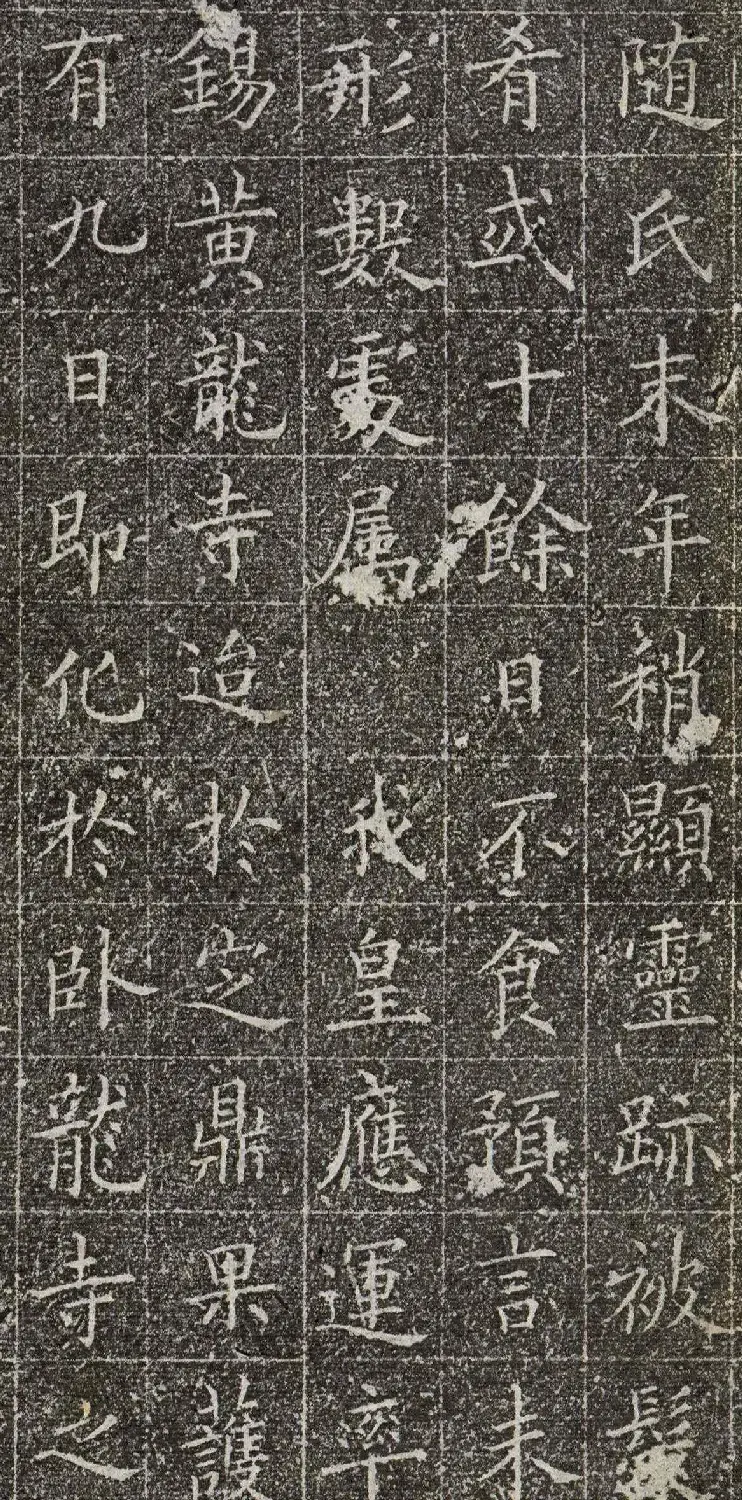 随氏末年稍顯靈跡被髮
肴或十餘日不食預言未
形數處属我皇應運率
錫黄龍寺迨於定鼎果護
有九日即化於卧龍寺之